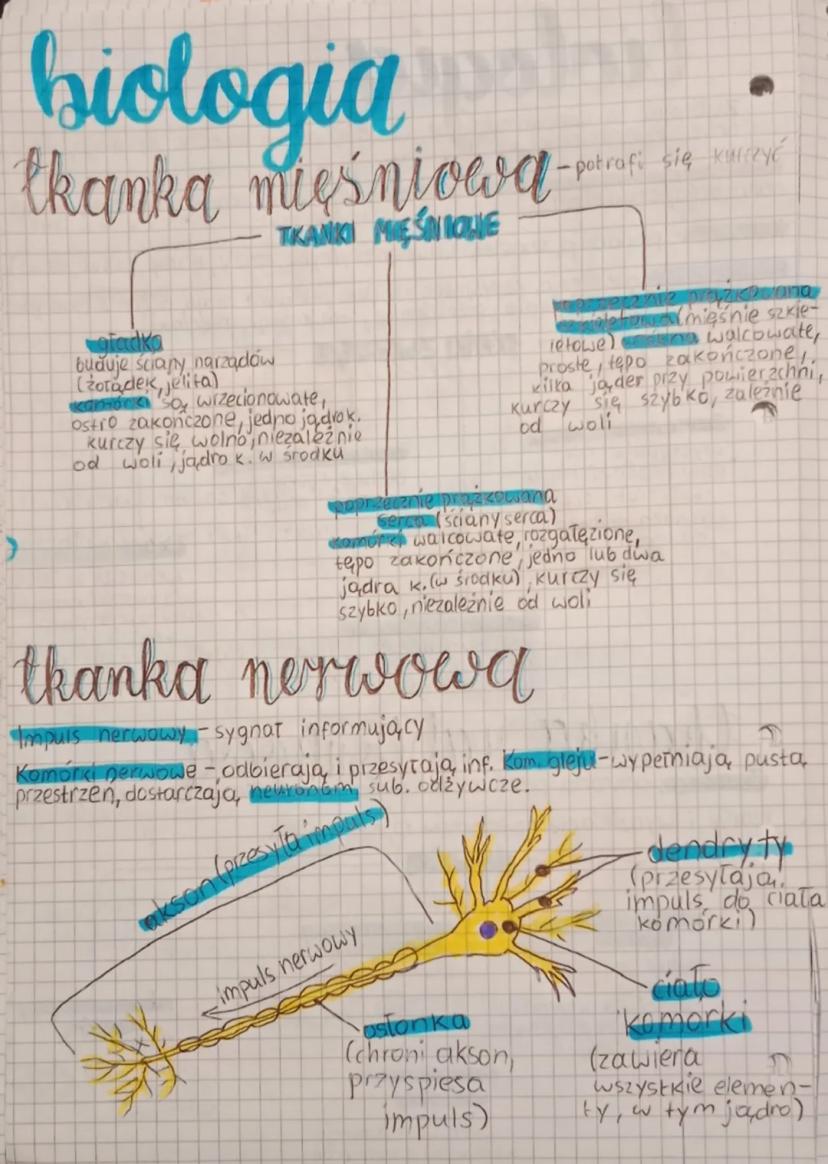 biologia
tkanka mięśniowa - potrafi się kurczyć
TKANKI MIĘŚNIOWE
gładka
buduje ściany narządów
(żołądek, jelita)
komórki są wrzecionowate,
ostro zakończone, jedno jądro k.
kurczy się wolno, niezależnie
od woli, jądro k. w środku
poprzecznie prążkowana
szkieletowa (mięśnie szkie-
letowe) walcowate,
proste, tępo zakończone,
kilka jąder przy powierzchni,
kurczy się szybko, zależnie
od woli
poprzecznie prążkowana
serca (ściany serca)
komórki walcowate, rozgałęzione,
tępo zakończone, jedno lub dwa
jądra k. (w środku), kurczy się
szybko, niezależnie od woli
tkanka nerwowa
Impuls nerwowy - sygnał informujący
Komórki nerwowe - odbierają i przesyłają inf. Kom. gleju - wypełniają pustą
przestrzeń, dostarczają neuronom sub. odżywcze.
akson (przesyła impuls)
impuls nerwowy
dendryty
(przesyłają
impuls do ciała
komórki)
ciało
komórki
(zawiera
wszystkie elemen-
ty, w tym jądro)
osłonka
(chroni akson,
przyspiesa
impuls)